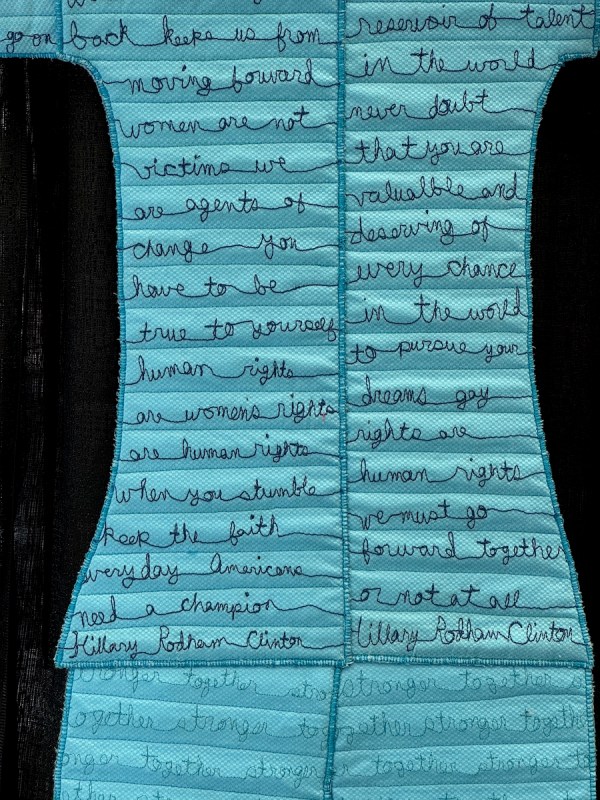 go on back keeps us from
moving forward
women are not
victims we
are agents of
change you
have to be
true to yourself
human rights
are women's rights
are human rights
when you stumble
keep the faith
everyday Americans
need a champion
Hillary Rodham Clinton
reservoir of talent
in the world
never doubt
that you are
valuable and
deserving of
every chance
in the world
to pursue your
dreams gay
rights are
human rights
we must go
forward together
or not at all
Hillary Rodham Clinton
together stronger together
together stronger together stronger together
together stronger together stronger